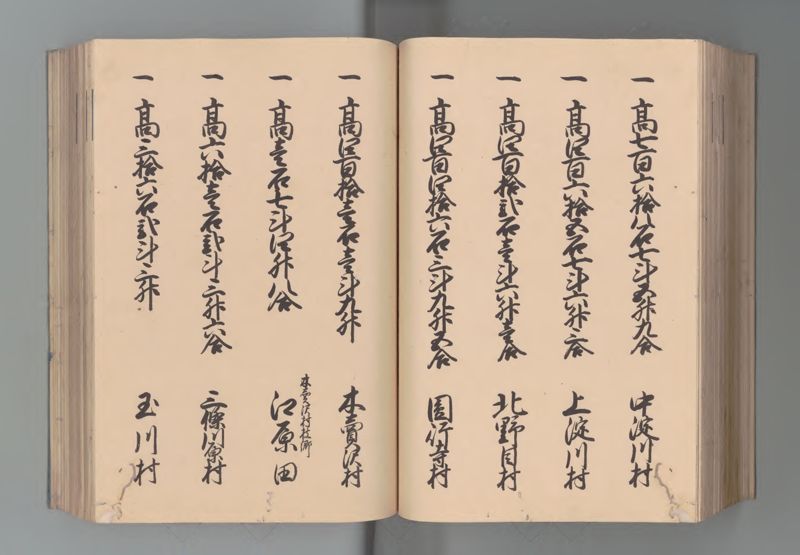 一 高七百六拾八石七斗五升九合 中淀川村
一 高四百六拾五石七斗六升三合 上淀川村
一 高四百拾弐石壱斗六升壱合 北野目村
一 高四百四拾六石三斗九升五合 園行寺村
一 高四百拾壱石壱斗九升 木賣沢村
一 高壱石七斗四升八合 木賣沢村枝郷 江原田
一 高六拾壱石弐斗三升六合 三條川原村
一 高三拾六石弐斗三升 玉川村